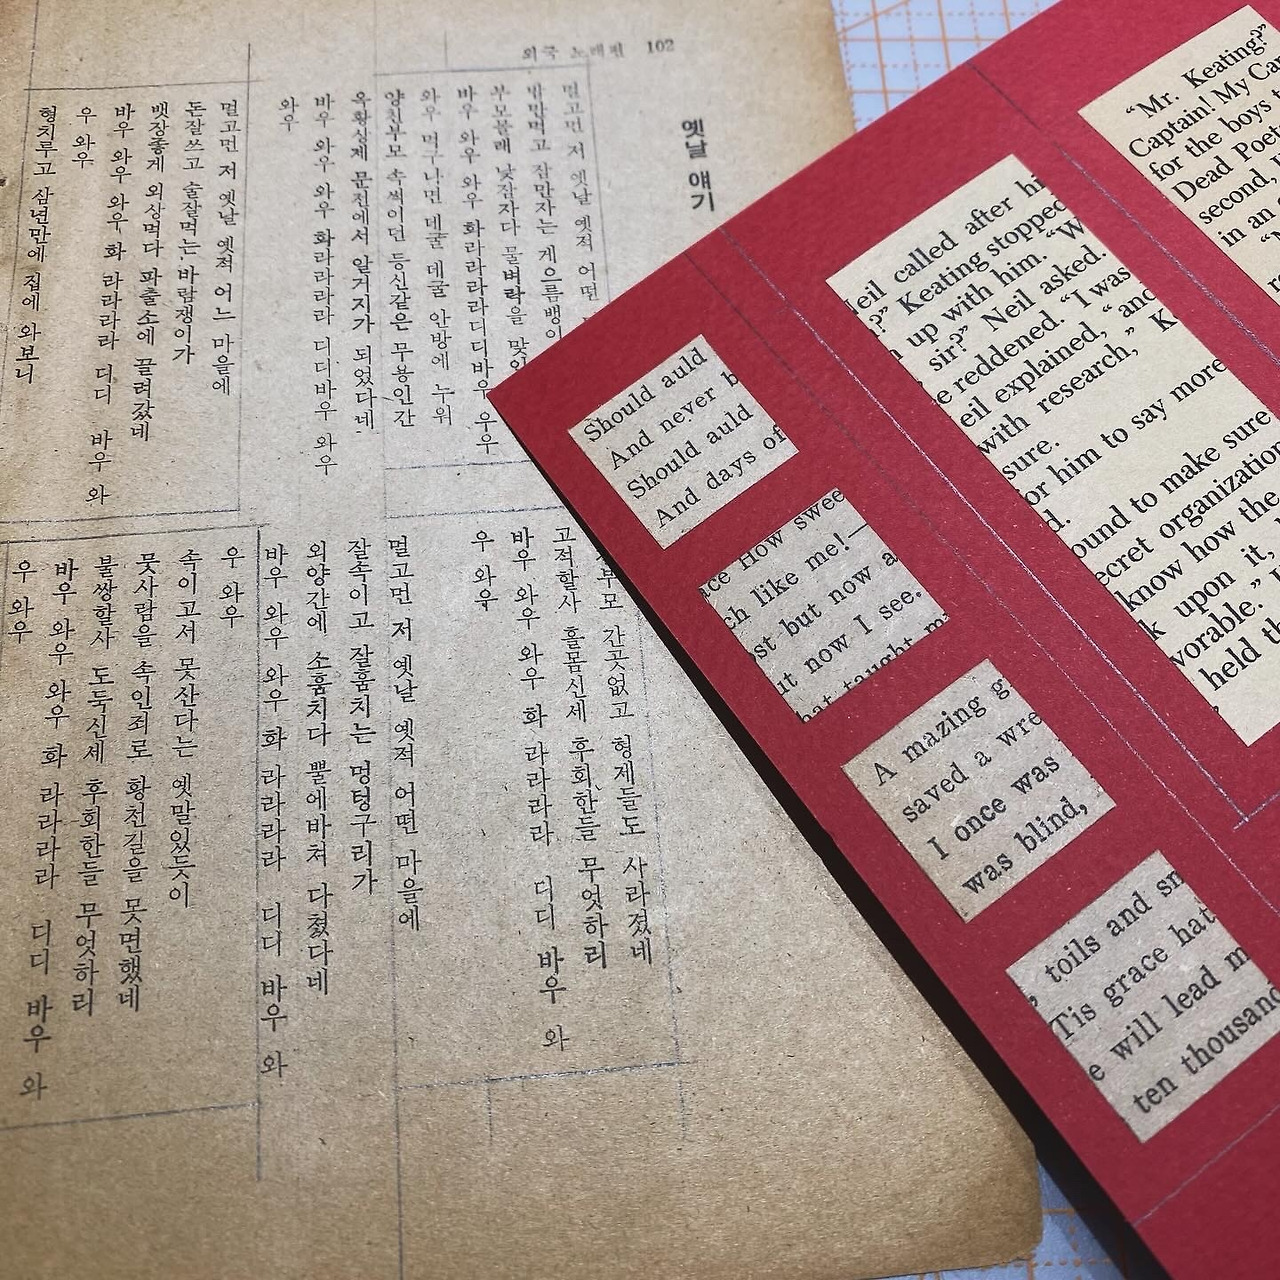 외국 노래편 102
옛날 얘기
멀고먼 저 옛날 옛적 어떤
밥만먹고 잠만자는 게으름뱅이
부모몰래 낮잠자다 물벼락을
바우 와우 와우 화라라라디디바우 우우
와우 먹구나면 데굴 데굴 안방에 누워
양친부모 속썩이던 등신같은 무용인간
옥황상제 문전에서 알거지가 되었다네
바우 와우 와우 화라라라 디디바우 와우
와우
멀고먼 저 옛날 옛적 어느 마을에
돈잘쓰고 술잘먹는 바람쟁이가
뱃장좋게 외상먹다 파출소에 끌려갔네
바우 와우 와우 화 라라라라 디디 바우 와
우 와우
형치루고 삼년만에 집에 와보니
부모 간곳없고 형제들도 사라졌네
고적할사 홀몸신세 후회한들 무엇하리
바우 와우 와우 화 라라라라 디디 바우 와
우 와우
멀고먼 저 옛날 옛적 어떤 마을에
잘속이고 잘훔치는 멍텅구리가
외양간에 소훔치다 뿔에바쳐 다쳤다네
바우 와우 와우 화 라라라라 디디 바우 와
우 와우
속이고서 못산다는 옛말있듯이
뭇사람을 속인죄로 황천길을 못면했네
불쌍할사 도둑신세 후회한들 무엇하리
바우 와우 와우 화 라라라라 디디 바우 와
우 와우
Should auld
And never b
Should auld
And days of
ce How swee
ch like me!—
st but now a
ut now I see.
hat taught m
A mazing g
saved a wre
I once was
was blind,
, toils and sn
Tis grace hat
e will lead m
ten thousand
Neil called after hi
?" Keating stopped
n up with him. "W
sir?" Neil asked.
e reddened. "I was
eil explained, "and
with research," K
sure.
or him to say more
d.
ound to make sure
ecret organization
know how the
k upon it,
vorable."
held th
"Mr. Keating?"
Captain! My Cap
for the boys t
Dead Poet
second,
in an